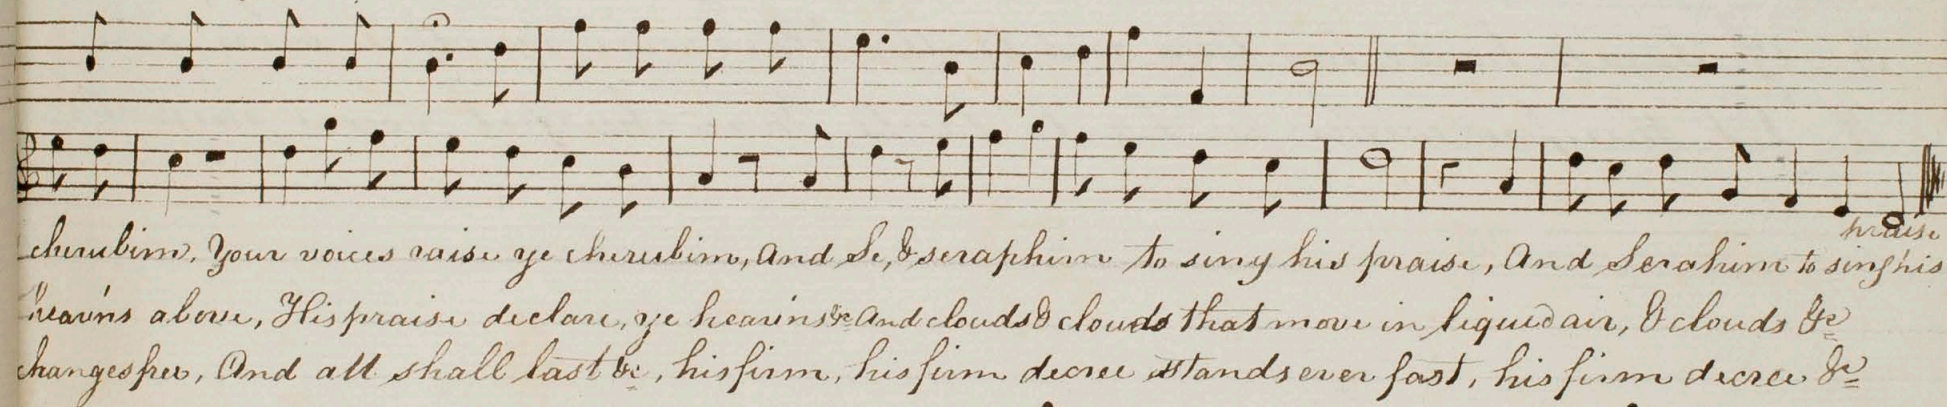 praise
cherubim, Your voices raise ye cherubim, And Se, & seraphim to sing his praise, And Serahim to sing his
heav'ns above, His praise declare, ye heavins &c And clouds & clouds that move in liquid air, & clouds &c
changes free, And all shall last &c, his firm, his firm decree stands ever fast, his firm decree &c